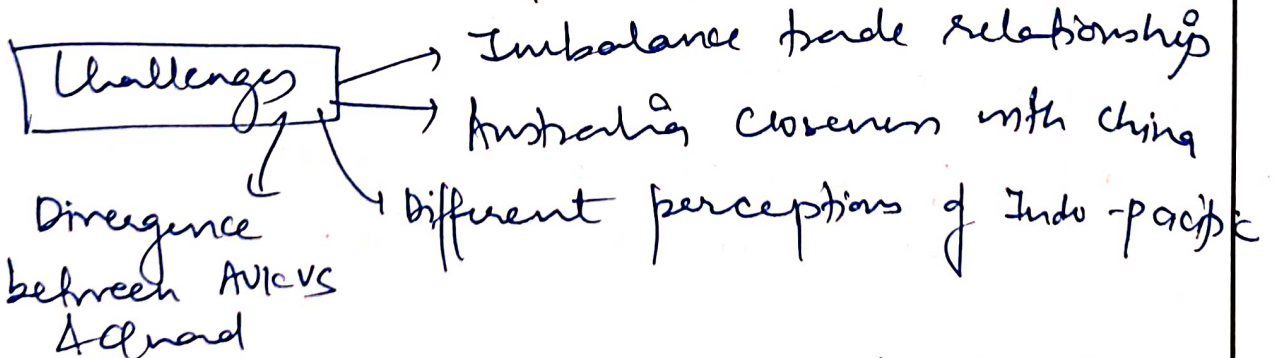 Challenges
Imbalance trade relationship
Australia closeness with China
Different perceptions of Indo-pacific
Divergence
between AUKUS
& Quad